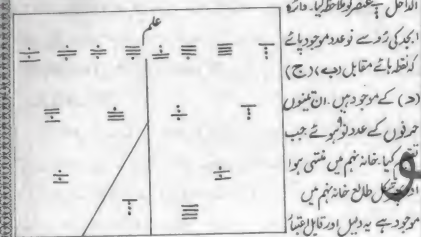 علم
الداخل سے عنصر نو ملاحظہ کیا۔ دائرہ
ابجد کی رو سے نو عدد موجود پائے
کہ نقطہ ہائے مقابل (ب)، (ج)
(د) کے موجود ہیں۔ ان تینوں
حرفوں کے عدد نو ہوئے جب
کیا۔ خانہ نہم میں منتہی ہوا
شکل طالع خانہ نہم میں
موجود ہے یہ دلیل اور قابل اعتبار